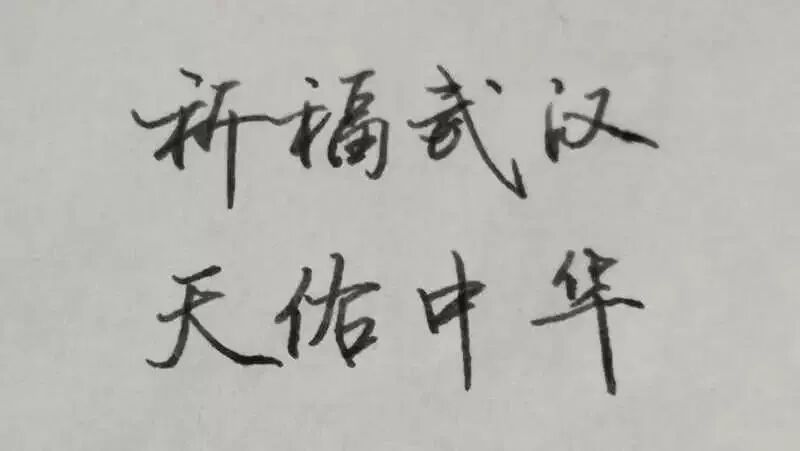 祈福武汉
天佑中华